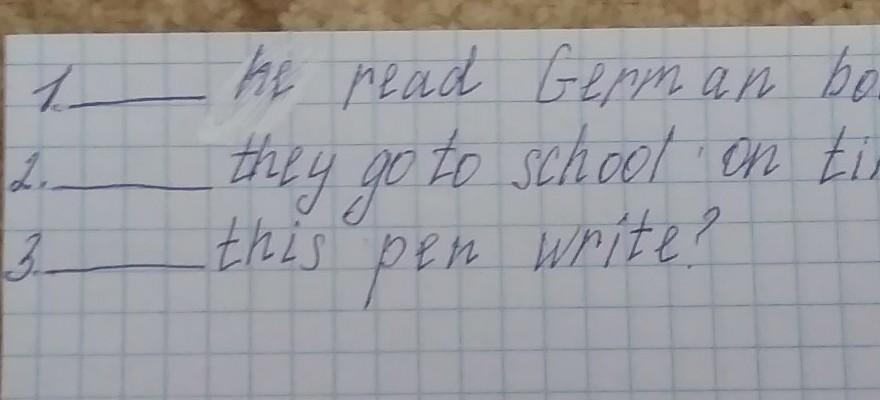 1. ____ he read German bo
2. ____ they go to school on ti
3. ____ this pen write?